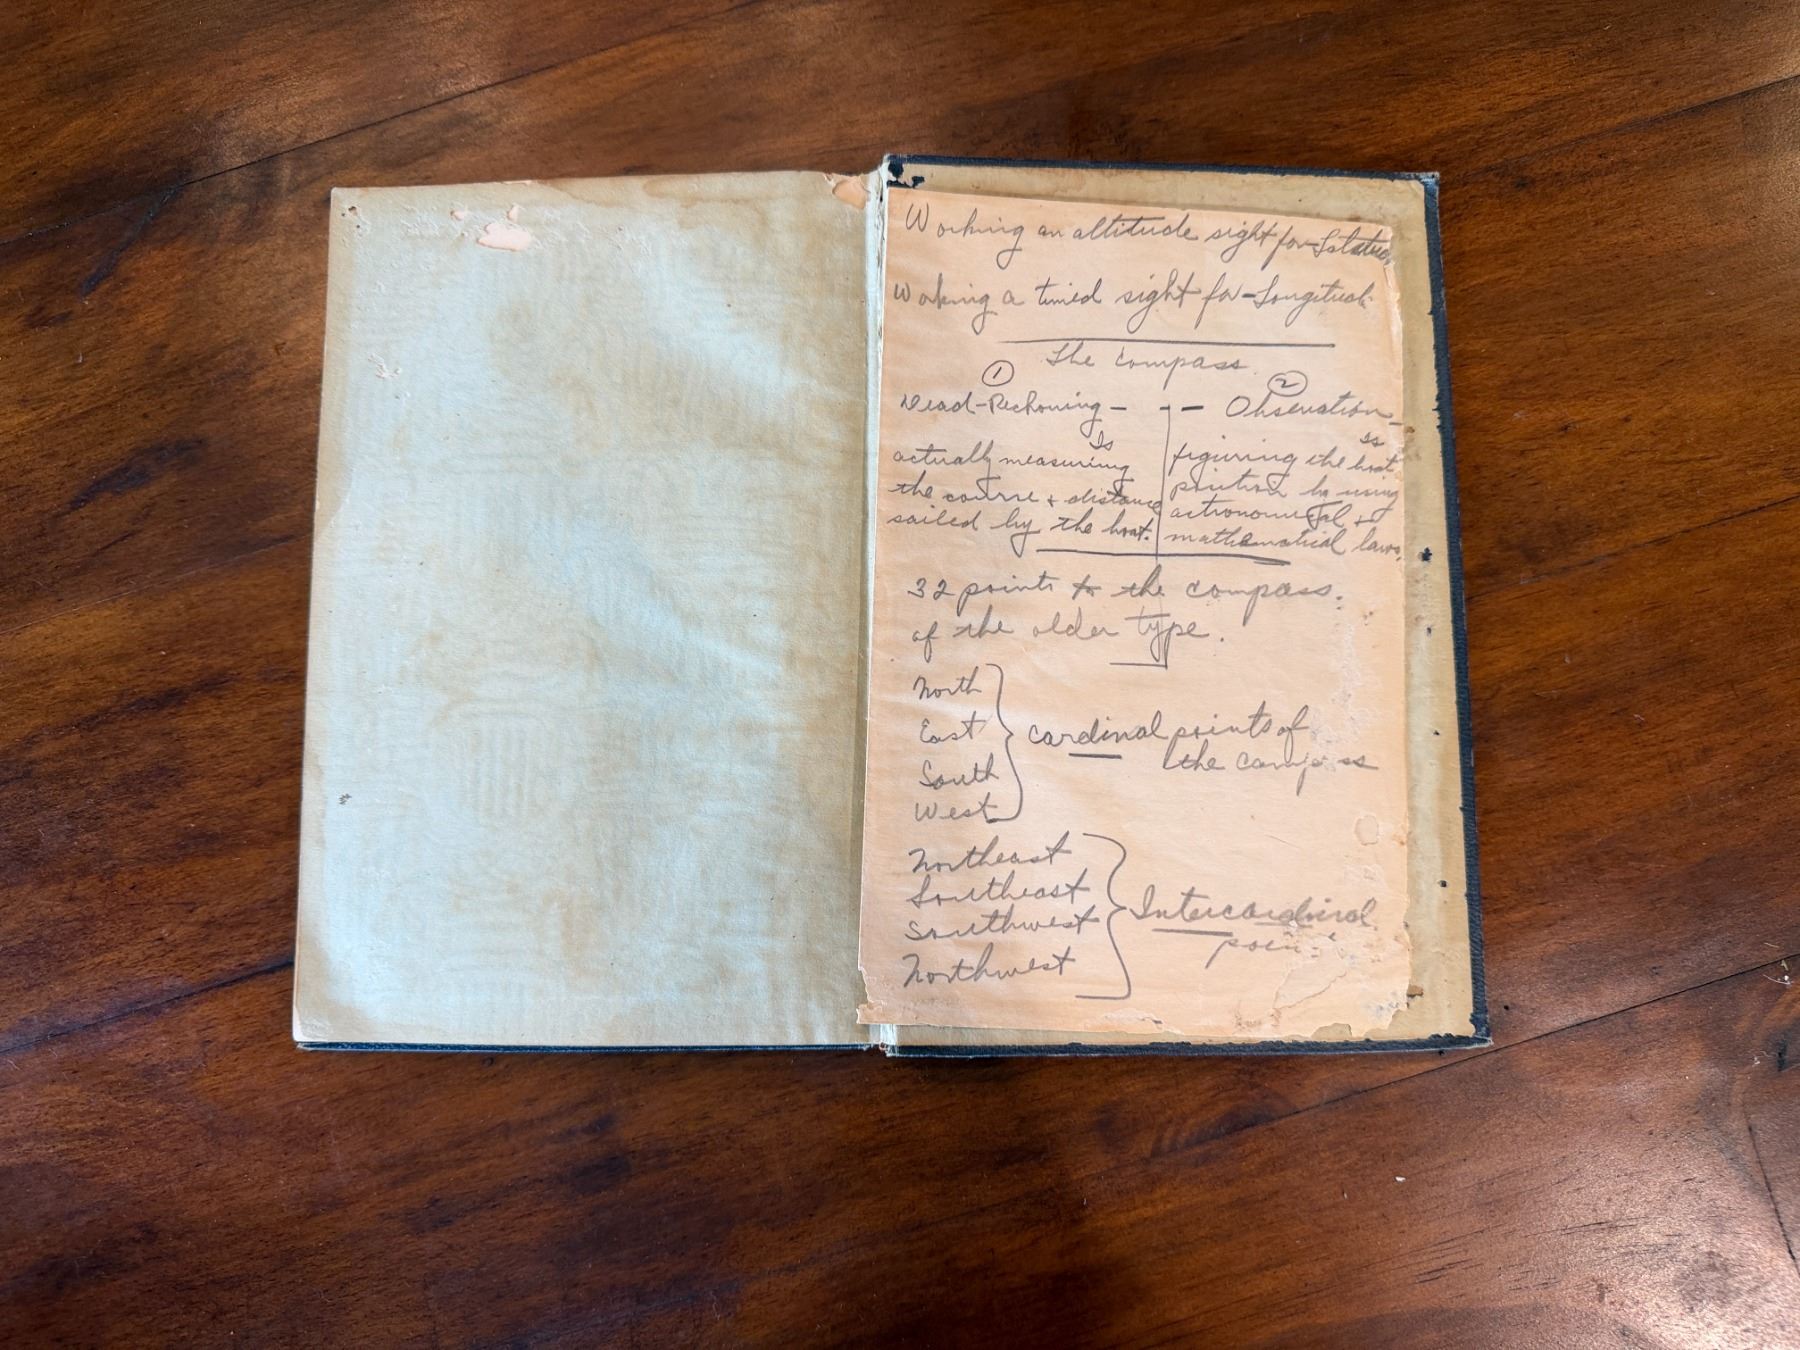 Working an altitude sight for Latitude,
Working a timed sight for Longitude
The Compass
① ②
Dead-Reckoning - - - Observation -
Is
actually measuring
the course + distance
sailed by the boat.
is
figuring the boat
position by using
astronomical +
mathematical laws.
32 points to the compass.
of the older type.
North
East
South
West
cardinal points of
the compass
Northeast
Southeast
Southwest
Northwest
Intercardinal